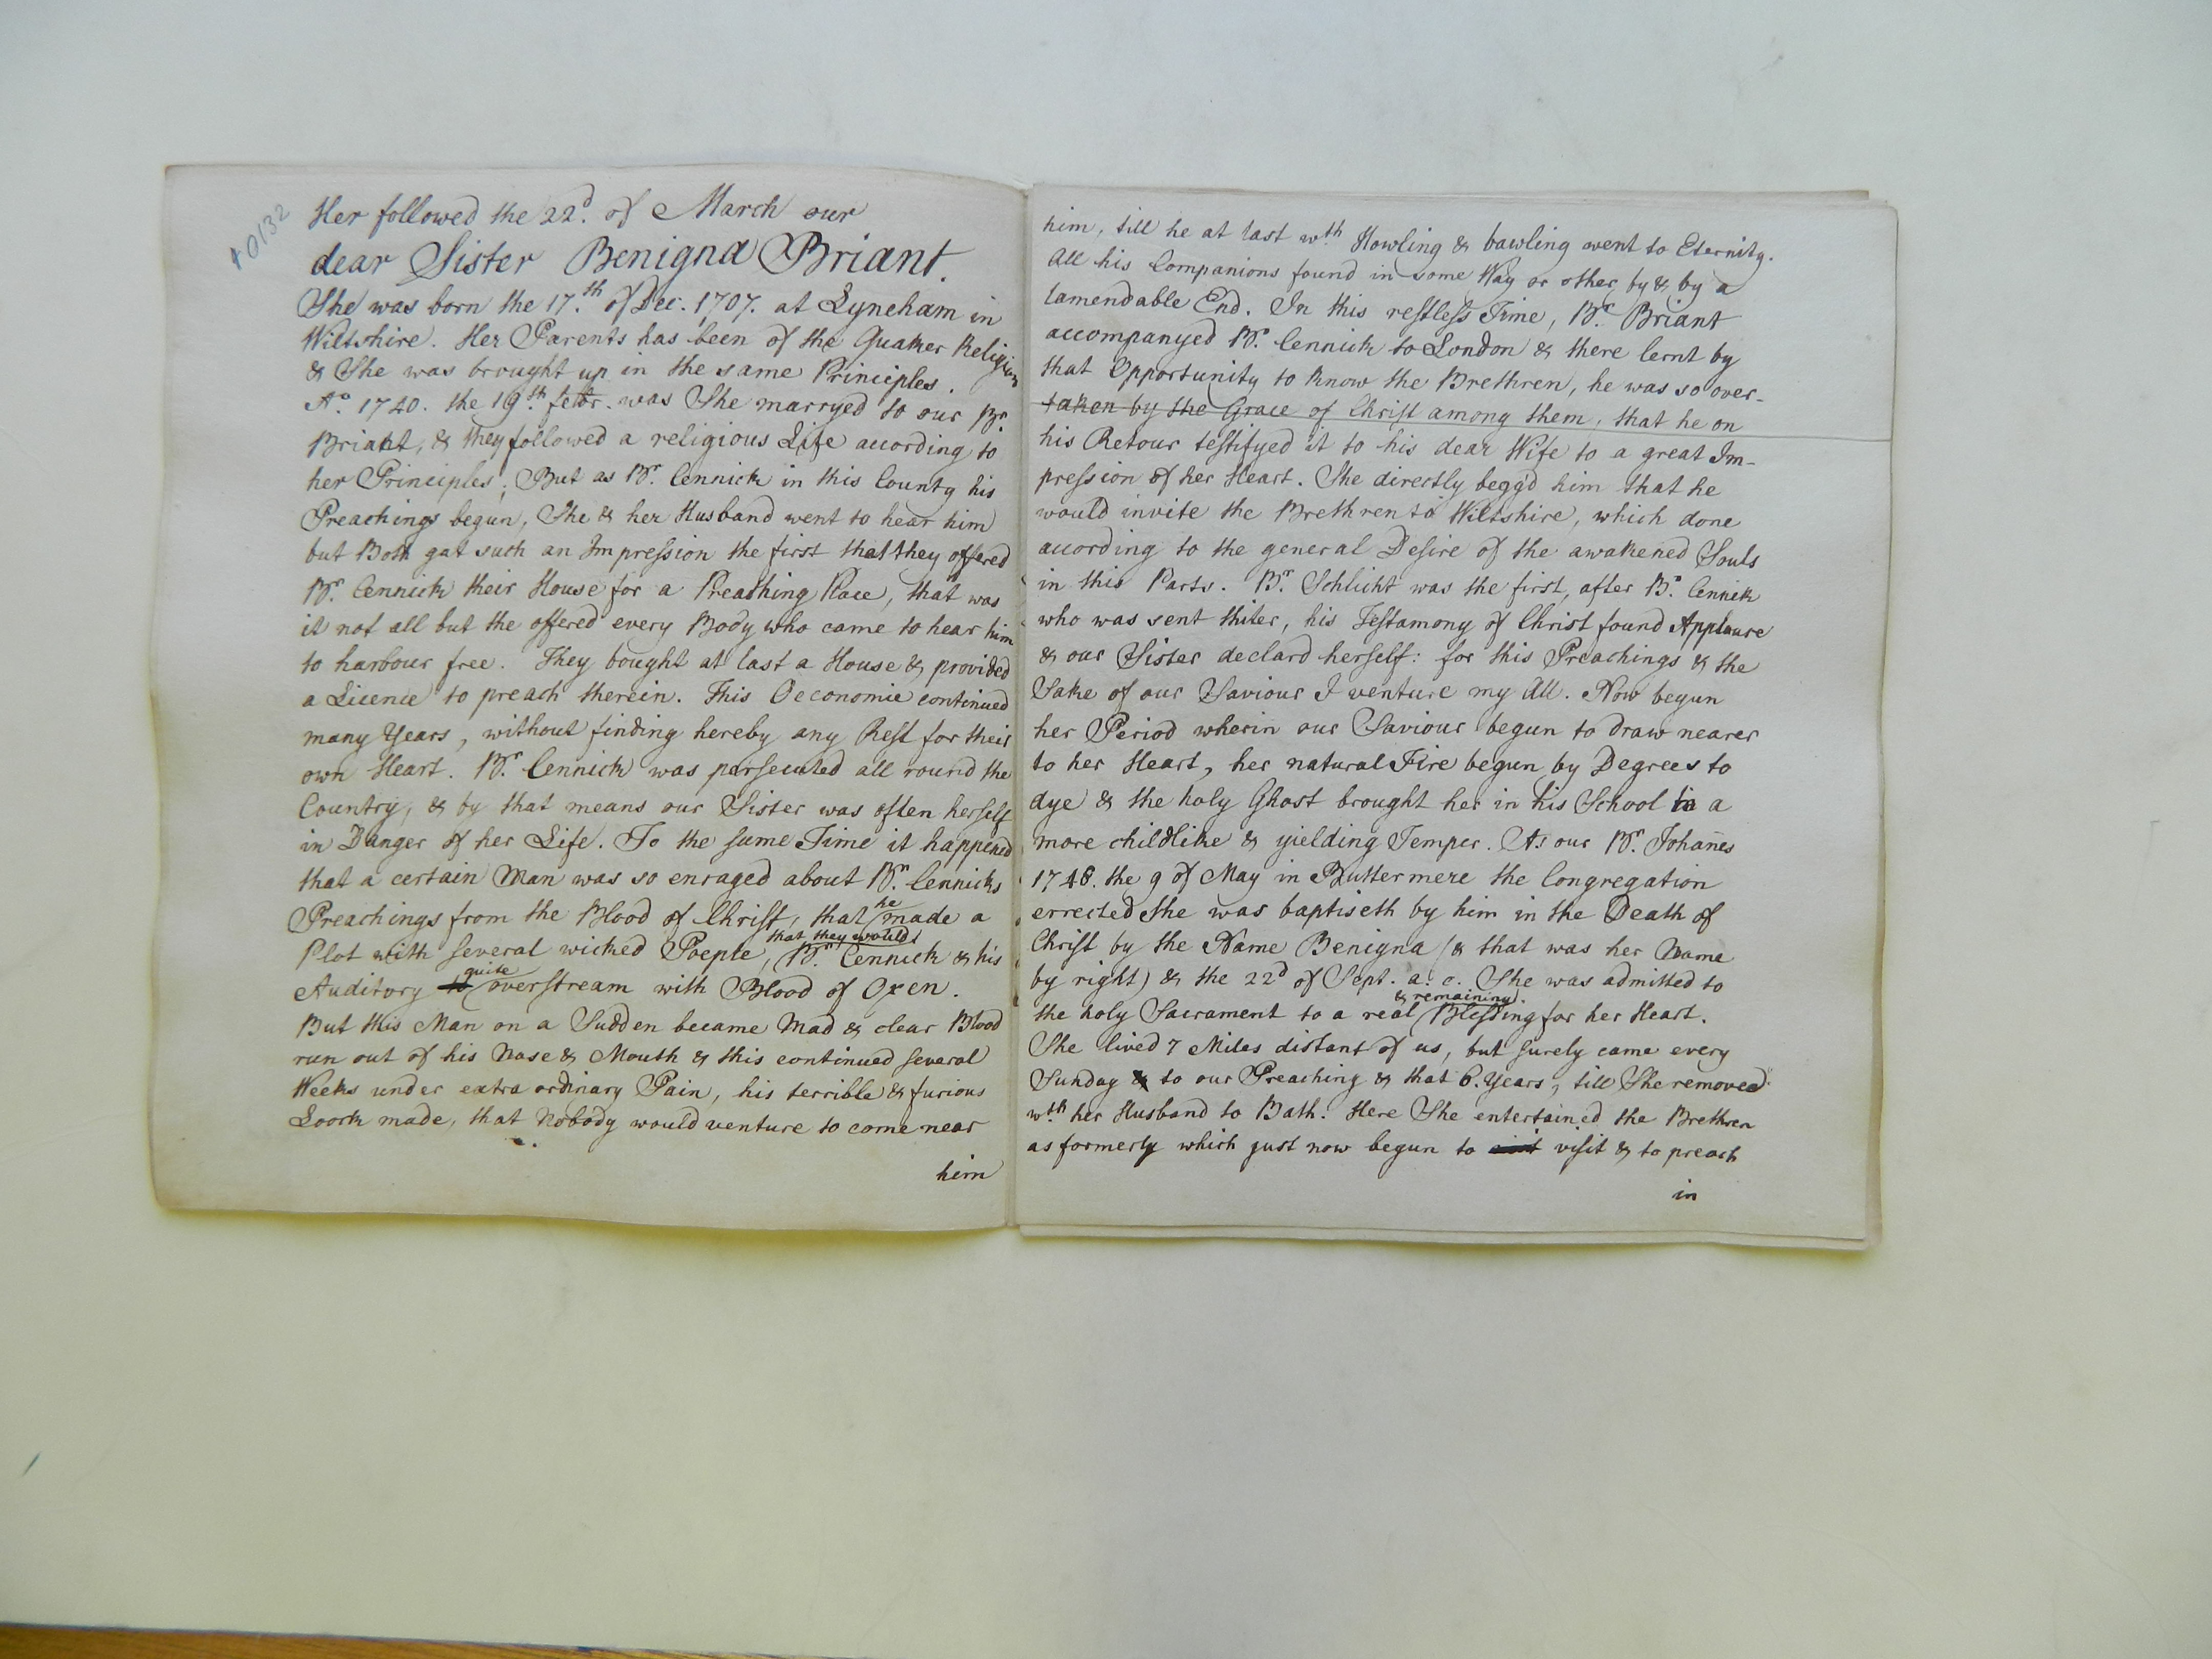 40132
Her followed the 22d. of March our
dear Sister Benigna Briant.
She was born the 17.th of Dec. 1707. at Lyneham in
Wiltshire. Her Parents has been of the Quaker Religion
& She was brought up in the same Principles.
Ao. 1740. the 19.th febr. was She marryed to our Br.
Briant, & they followed a religious Life acording to
her Principles; But as Br. Cennick in this County his
Preachings begun, She & her Husband went to hear him
but Both gat such an Impression the first that they offered
Br. Cennick their House for a Preaching Place, that was
it not all but the offered every Body who came to hear him
to harbour free. They bought at last a House & provided
a Licence to preach therein. This Oeconomie continued
many Years, without finding hereby any Rest for their
own Heart. Br. Cennick was persecuted all round the
Country, & by that means our Sister was often herself
in Danger of her Life. To the same Time it happened
that a certain Man was so enraged about Br. Cennicks
Preachings from the Blood of Christ, that he made a
Plot with several wicked Poeple, that they would Br. Cennick & his
Auditory to quite overstream with Blood of Oxen.
But this Man on a Sudden became Mad & clear Blood
run out of his Nose & Mouth & this continued several
Weeks under extra ordinary Pain, his terrible & furious
Loock made, that Nobody would venture to come near
him
him, till he at last wth. Howling & bawling went to Eternity.
All his Companions found in some Way or other, by & by a
lamendable End. In this restless Time, Br. Briant
accompanyed Br. Cennick to London & there lernt by
that Opportunity to know the Brethren, he was so over-
taken by the Grace of Christ among them, that he on
his Retour testifyed it to his dear Wife to a great Im-
pression of her Heart. She directly begg'd him that he
would invite the Brethren to Wiltshire, which done
acording to the general Desire of the awakened Souls
in this Parts. Br. Schlicht was the first, after Br. Cennick
who was sent thiter, his Testamony of Christ found Applause
& our Sister declard herself: for this Preachings & the
Sake of our Saviour I venture my All. Now begun
her Period wherin our Saviour begun to draw nearer
to her Heart, her natural Fire begun by Degrees to
dye & the holy Ghost brought her in his School in a
more childlike & yielding Temper. As our Br. Johañes
1748. the 9 of May in Buttermere the Congregation
errected She was baptiseth by him in the Death of
Christ by the Name Benigna (& that was her Name
by right) & the 22d of Sept. a. c. She was admitted to
the holy Sacrament to a real & remaining Blessing for her Heart.
She lived 7 Miles distant of us, but surely came every
Sunday & to our Preaching & that 6. Years, till She removed
wth. her Husband to Bath. Here She entertained the Brethren
as formerly which just now begun to visit & to preach
in